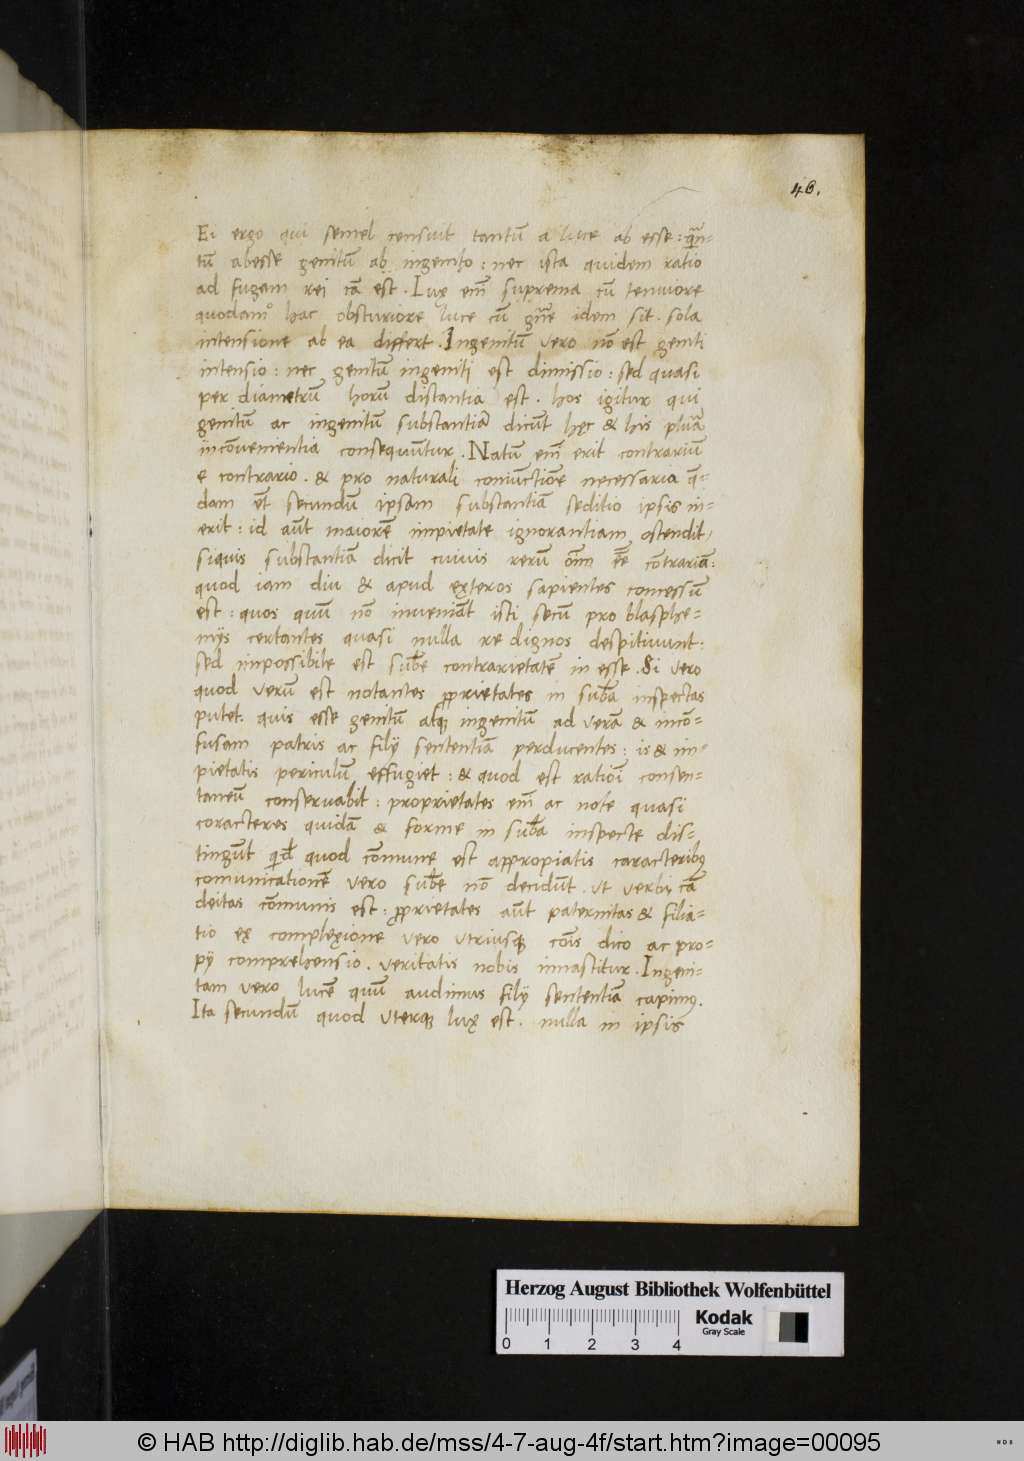 46.
Ei ergo qui semel censuit tantū a luce ab esse: quā-
tū abesse genitū ab ingenito: nec ista quidem ratio
ad fugam rei cā est. Lux em̄ suprema cū tenuiore
quodamº hac obscuriore luce cū gñe idem sit. sola
intensione ab ea differt. Ingenitū vero nō est geniti
intensio: nec genitū ingeniti est dimissio: sed quasi
per diametrū horū distantia est. hos igitur qui
genitū ac ingenitū substantiā dicūt hęc & his plura
incōvenientia consequūtur. Natū em̄ erit contrariū
e contrario. & pro naturali coniūctiōe necessaria q̄-
dam et̄ secundū ipsam substantiā seditio ipsis in-
erit: id aūt maiorē impietate ignorantiam ostendit,
siquis substantiā dicit cuiuis rerū oīm eē cōtrariā:
quod iam diu & apud exteros sapientes concessū
est: quos quū nō inveniāt isti secū pro blasphe-
mijs certantes quasi nulla re dignos despiciuunt:
sed impossibile est sub̄e contrarietatē in esse. Si vero
quod verū est notantes proprietates in sub̄a inspectas
putet. quis esse genitū atq; ingenitū ad verā & incō-
fusam patris ac filij sententiā perducentes: is & im-
pietatis periculū effugiet: & quod est rationi consen-
taneū conservabit: proprietates em̄ ac note quasi
coracteres quidā & forme in sub̄a inspecte dis-
tingūt qd̄ quod cōmune est appropiatis caracteribꝰ
comunicationē vero sub̄e nō decidūt. ut verbi cā
deitas cōmunis est: proprietates aūt paternitas & filia-
tio ex complexione vero utriusq; cōis dico ac pro-
pij comprehensio. veritatis nobis innastitur. Ingeni-
tam vero lucē quū audimus filij sententiā capimꝰ.
Ita secundū quod uterq; lux est. nulla in ipsis
Herzog August Bibliothek Wolfenbüttel
Kodak
Gray Scale
0 1 2 3 4
© HAB http://diglib.hab.de/mss/4-7-aug-4f/start.htm?image=00095